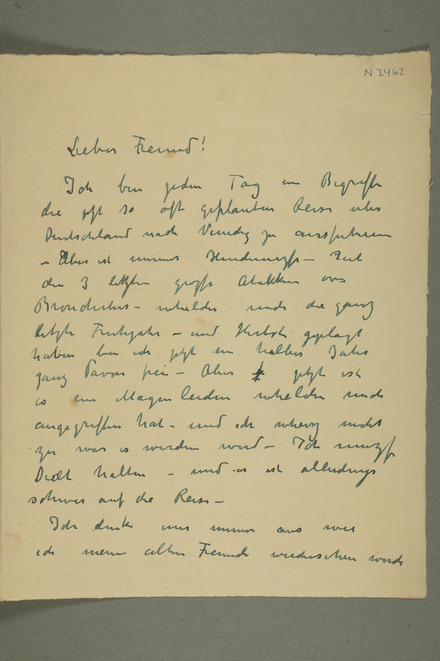 N 2462
Lieber Freund!
Ich bin jeden Tag im Begriffe
die jetzt so oft geplanten Reise über
Deutschland nach Venedig zu ausführen
– Aber ist immer – Seit
den 3 letzten große Atakken von
Bronchitis – welche mich die ganz
letzte Frühjahr – und Herbst geplagt
haben bin ich jetzt ein halbes Jahr
ganz davon frei – Aber jetzt ist
es ein Magenleiden welches mich
angegriffen hat – und ich weiss nicht
zu was es werden wird – Ich muss
Diæt halten – und es ist allerdings
schwer auf die Reise –
Ich denke mir immer aus wie
ich meine alten Freunde wiedersehen werde